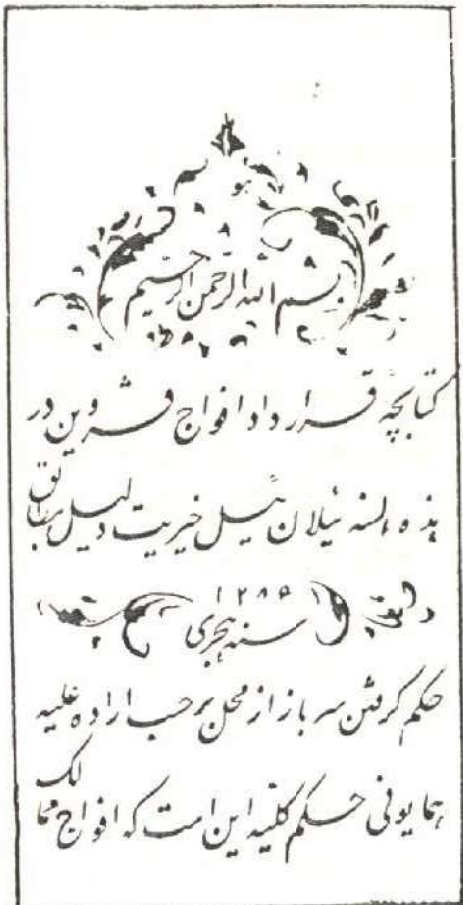 هو
بسم الله الرحمن الرحیم
کتابچه قرارداد افواج قزوین در
هذه السنه ئیلان ئیل خیریت دلیل مطابق
۱۲۸۶
سنه هجری
حکم گرفتن سرباز از محل برحسب اراده علیه
همایونی حکم کلیه این است که افواج ممالک